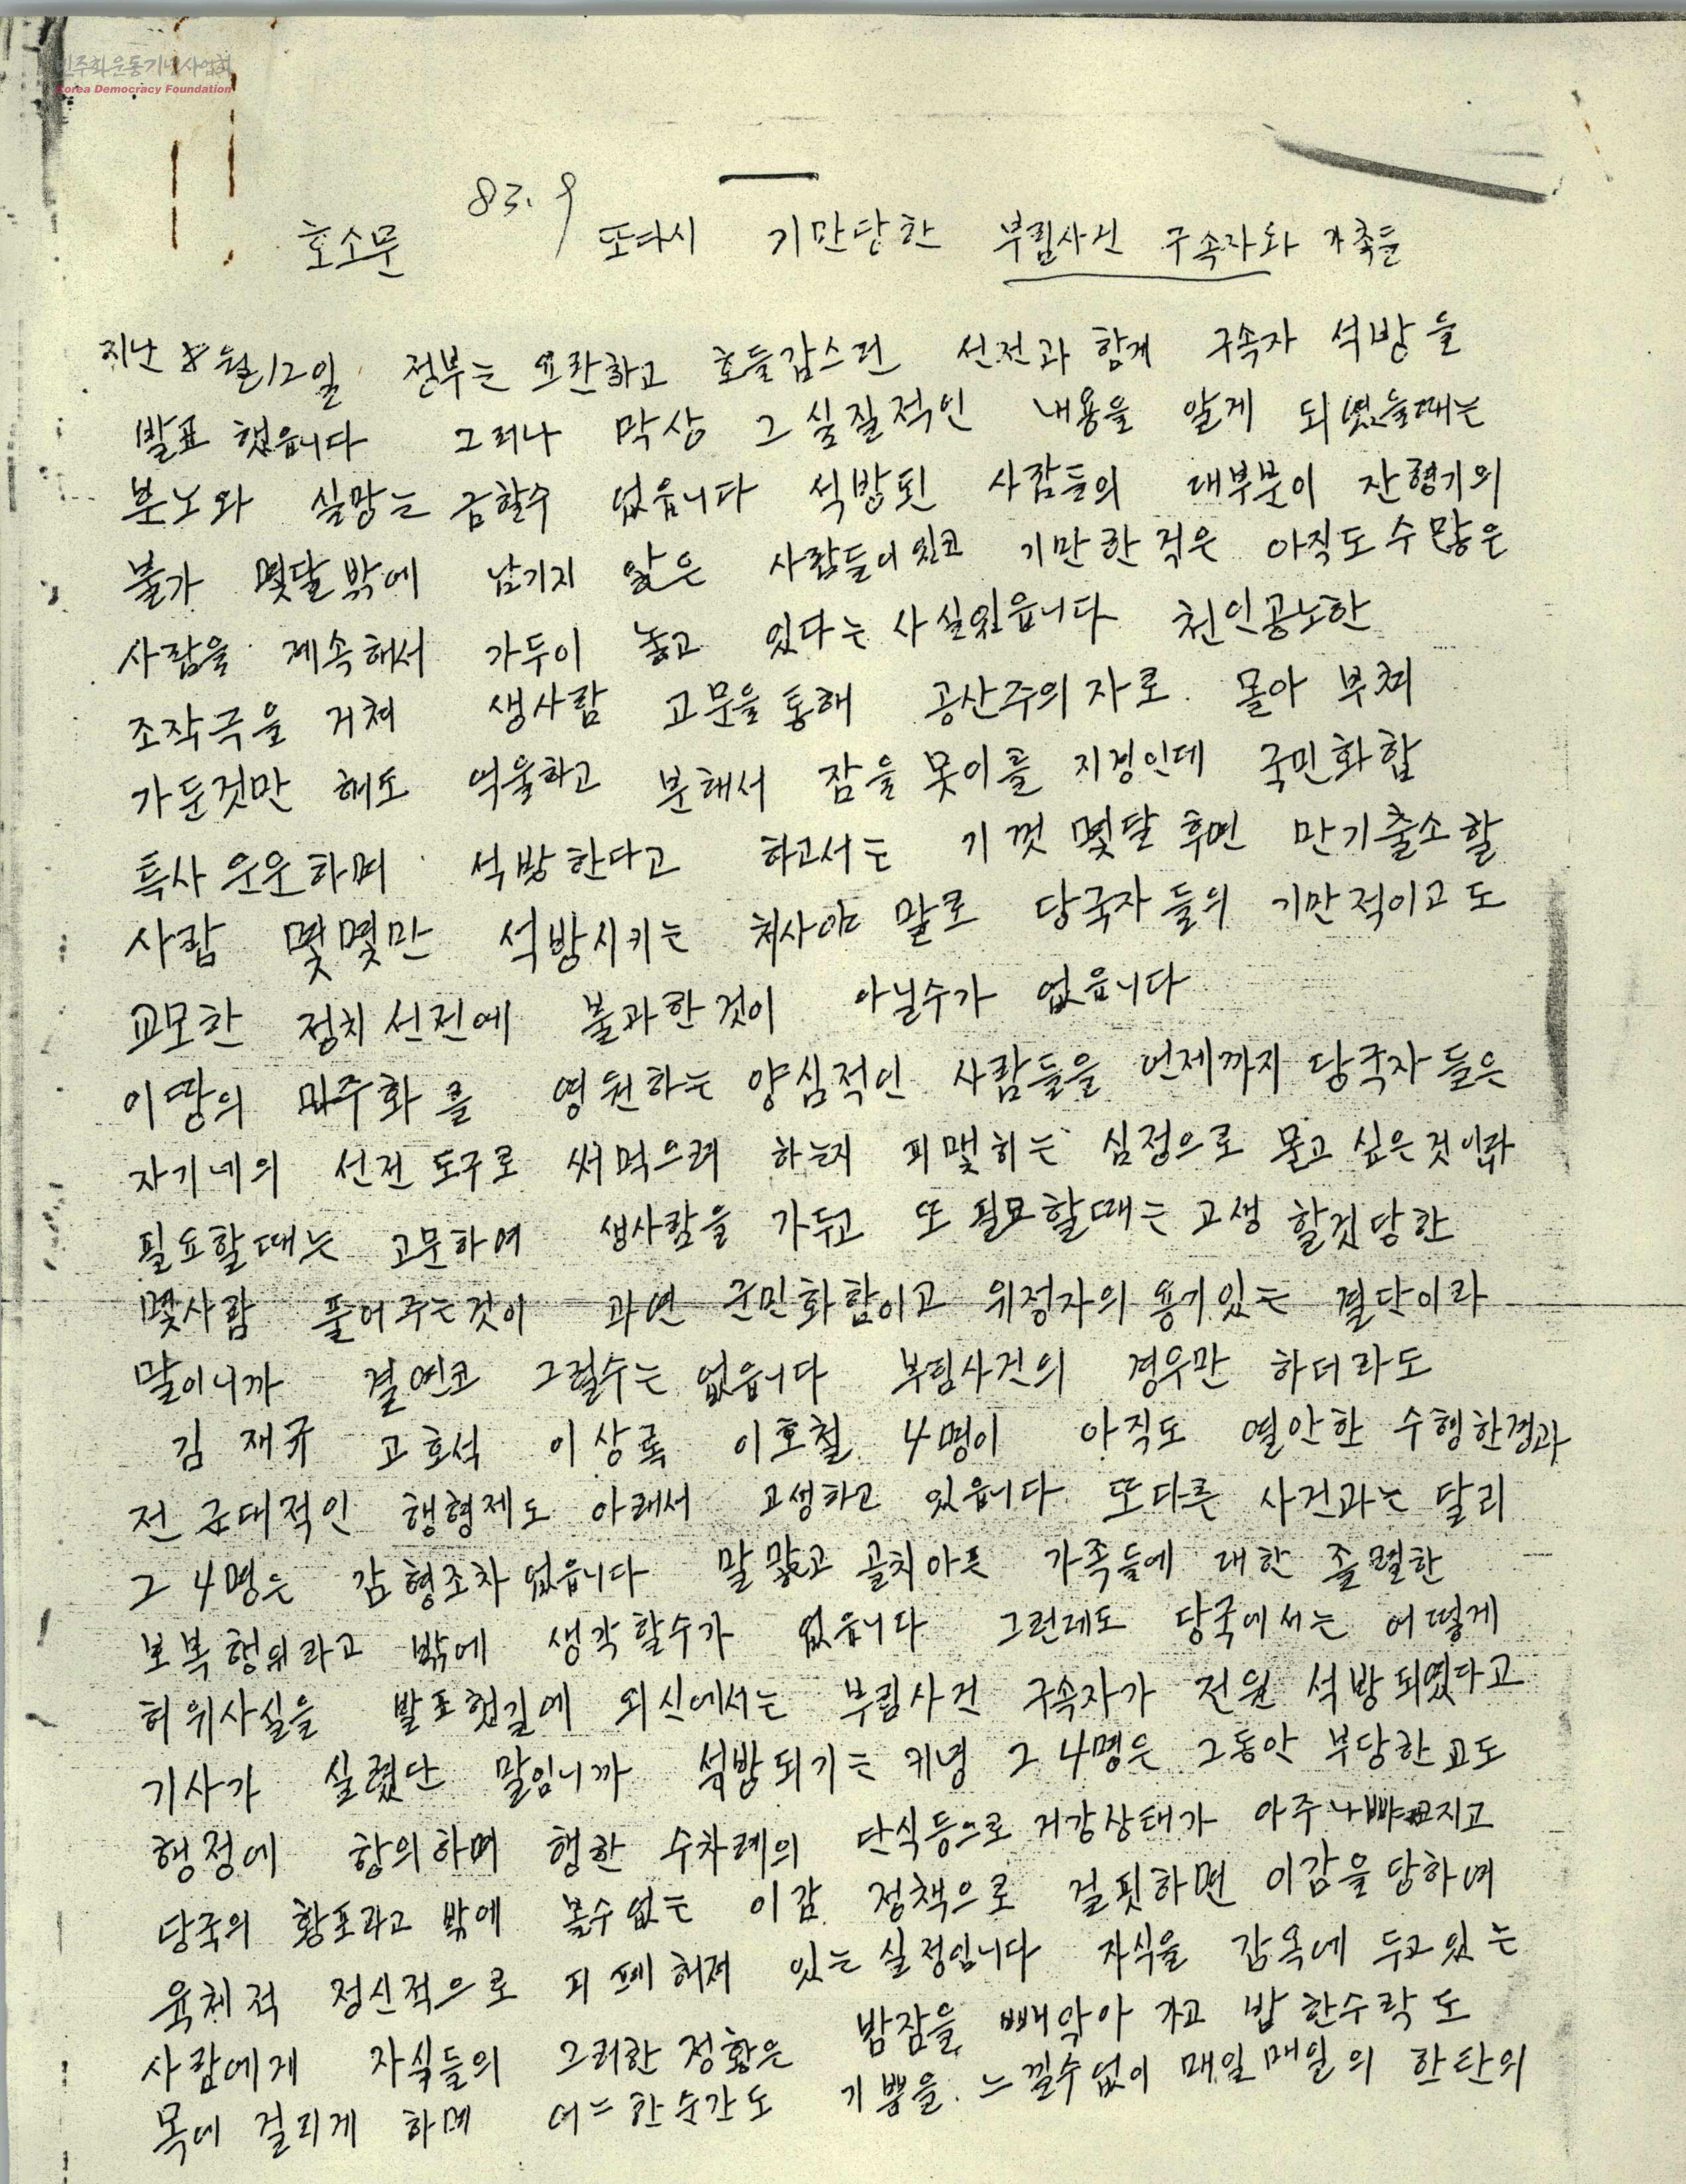 민주화운동기념사업회
Korea Democracy Foundation
83. 9
호소문 또다시 기만당한 부림사건 구속자와 가족들
지난 8월12일 정부는 요란하고 호들갑스런 선전과 함게 구속자 석방을
발표 했읍니다 그러나 막상 그 실질적인 내용을 알게 되였을때는
분노와 실망는 금할수 없읍니다 석방된 사람들의 대부분이 잔형기의
불가 몇달밖에 남기지 않은 사람들이있고 기만한적은 아직도 수많은
사람을 계속해서 가두이 놓고 있다는 사실있읍니다 천인공노한
조작극을 거쳐 생사람 고문을 통해 공산주의자로 몰아 부쳐
가둔것만 해도 억울하고 분해서 잠을 못이룰 지경인데 국민화합
특사 운운하며 석방한다고 하고서는 기껏 몇달 후면 만기출소할
사람 몇몇만 석방시키는 처사야 말로 당국자 들의 기만적이고도
교모한 정치선전에 불과한것이 아닐수가 없읍니다
이땅의 민주화를 영원하는 양심적인 사람들을 언제까지 당국자 들은
자기네의 선전도구로 써먹으려 하는지 피맺히는 심정으로 묻고 싶은것이라
필요할때는 고문하여 생사람을 가두고 또 필요할때는 고생 할것당한
몇사람 풀어주는것이 과연 국민화합이고 위정자의 용기있는 결단이라
말이니까 결연코 그럴수는 없읍니다 부림사건의 경우만 하더라도
김 재규 고호석 이상록 이호철 4명이 아직도 열안한 수형한경과
전 근대적인 행형제도 아래서 고생하고 있읍니다 또다른 사건과는 달리
그 4명은 감형조차 없읍니다 말많고 골치아픈 가족들에 대한 졸렬한
보복행위라고 밖에 생각할수가 없읍니다 그런데도 당국에서는 어떻게
허위사실을 발표했길에 외신에서는 부림사건 구속자가 전원 석방되였다고
기사가 실렸단 말임니까 석방되기는 커녕 그 4명은 그동안 부당한 교도
행정에 항의하며 행한 수차례의 단식등으로 거강상태가 아주 나빠지고
당국의 황포라고 밖에 볼수없는 이감 정책으로 걸핏하면 이감을 당하며
육체적 정신적으로 피페해져 있는 실정임니다 자식을 감옥에 두고있는
사람에게 자식들의 그러한 정황은 밤잠을 빼앗아 가고 밥 한수락도
목에 걸리게 하며 어느한순간도 기쁨을 느낄수없이 매일매일의 한탄의